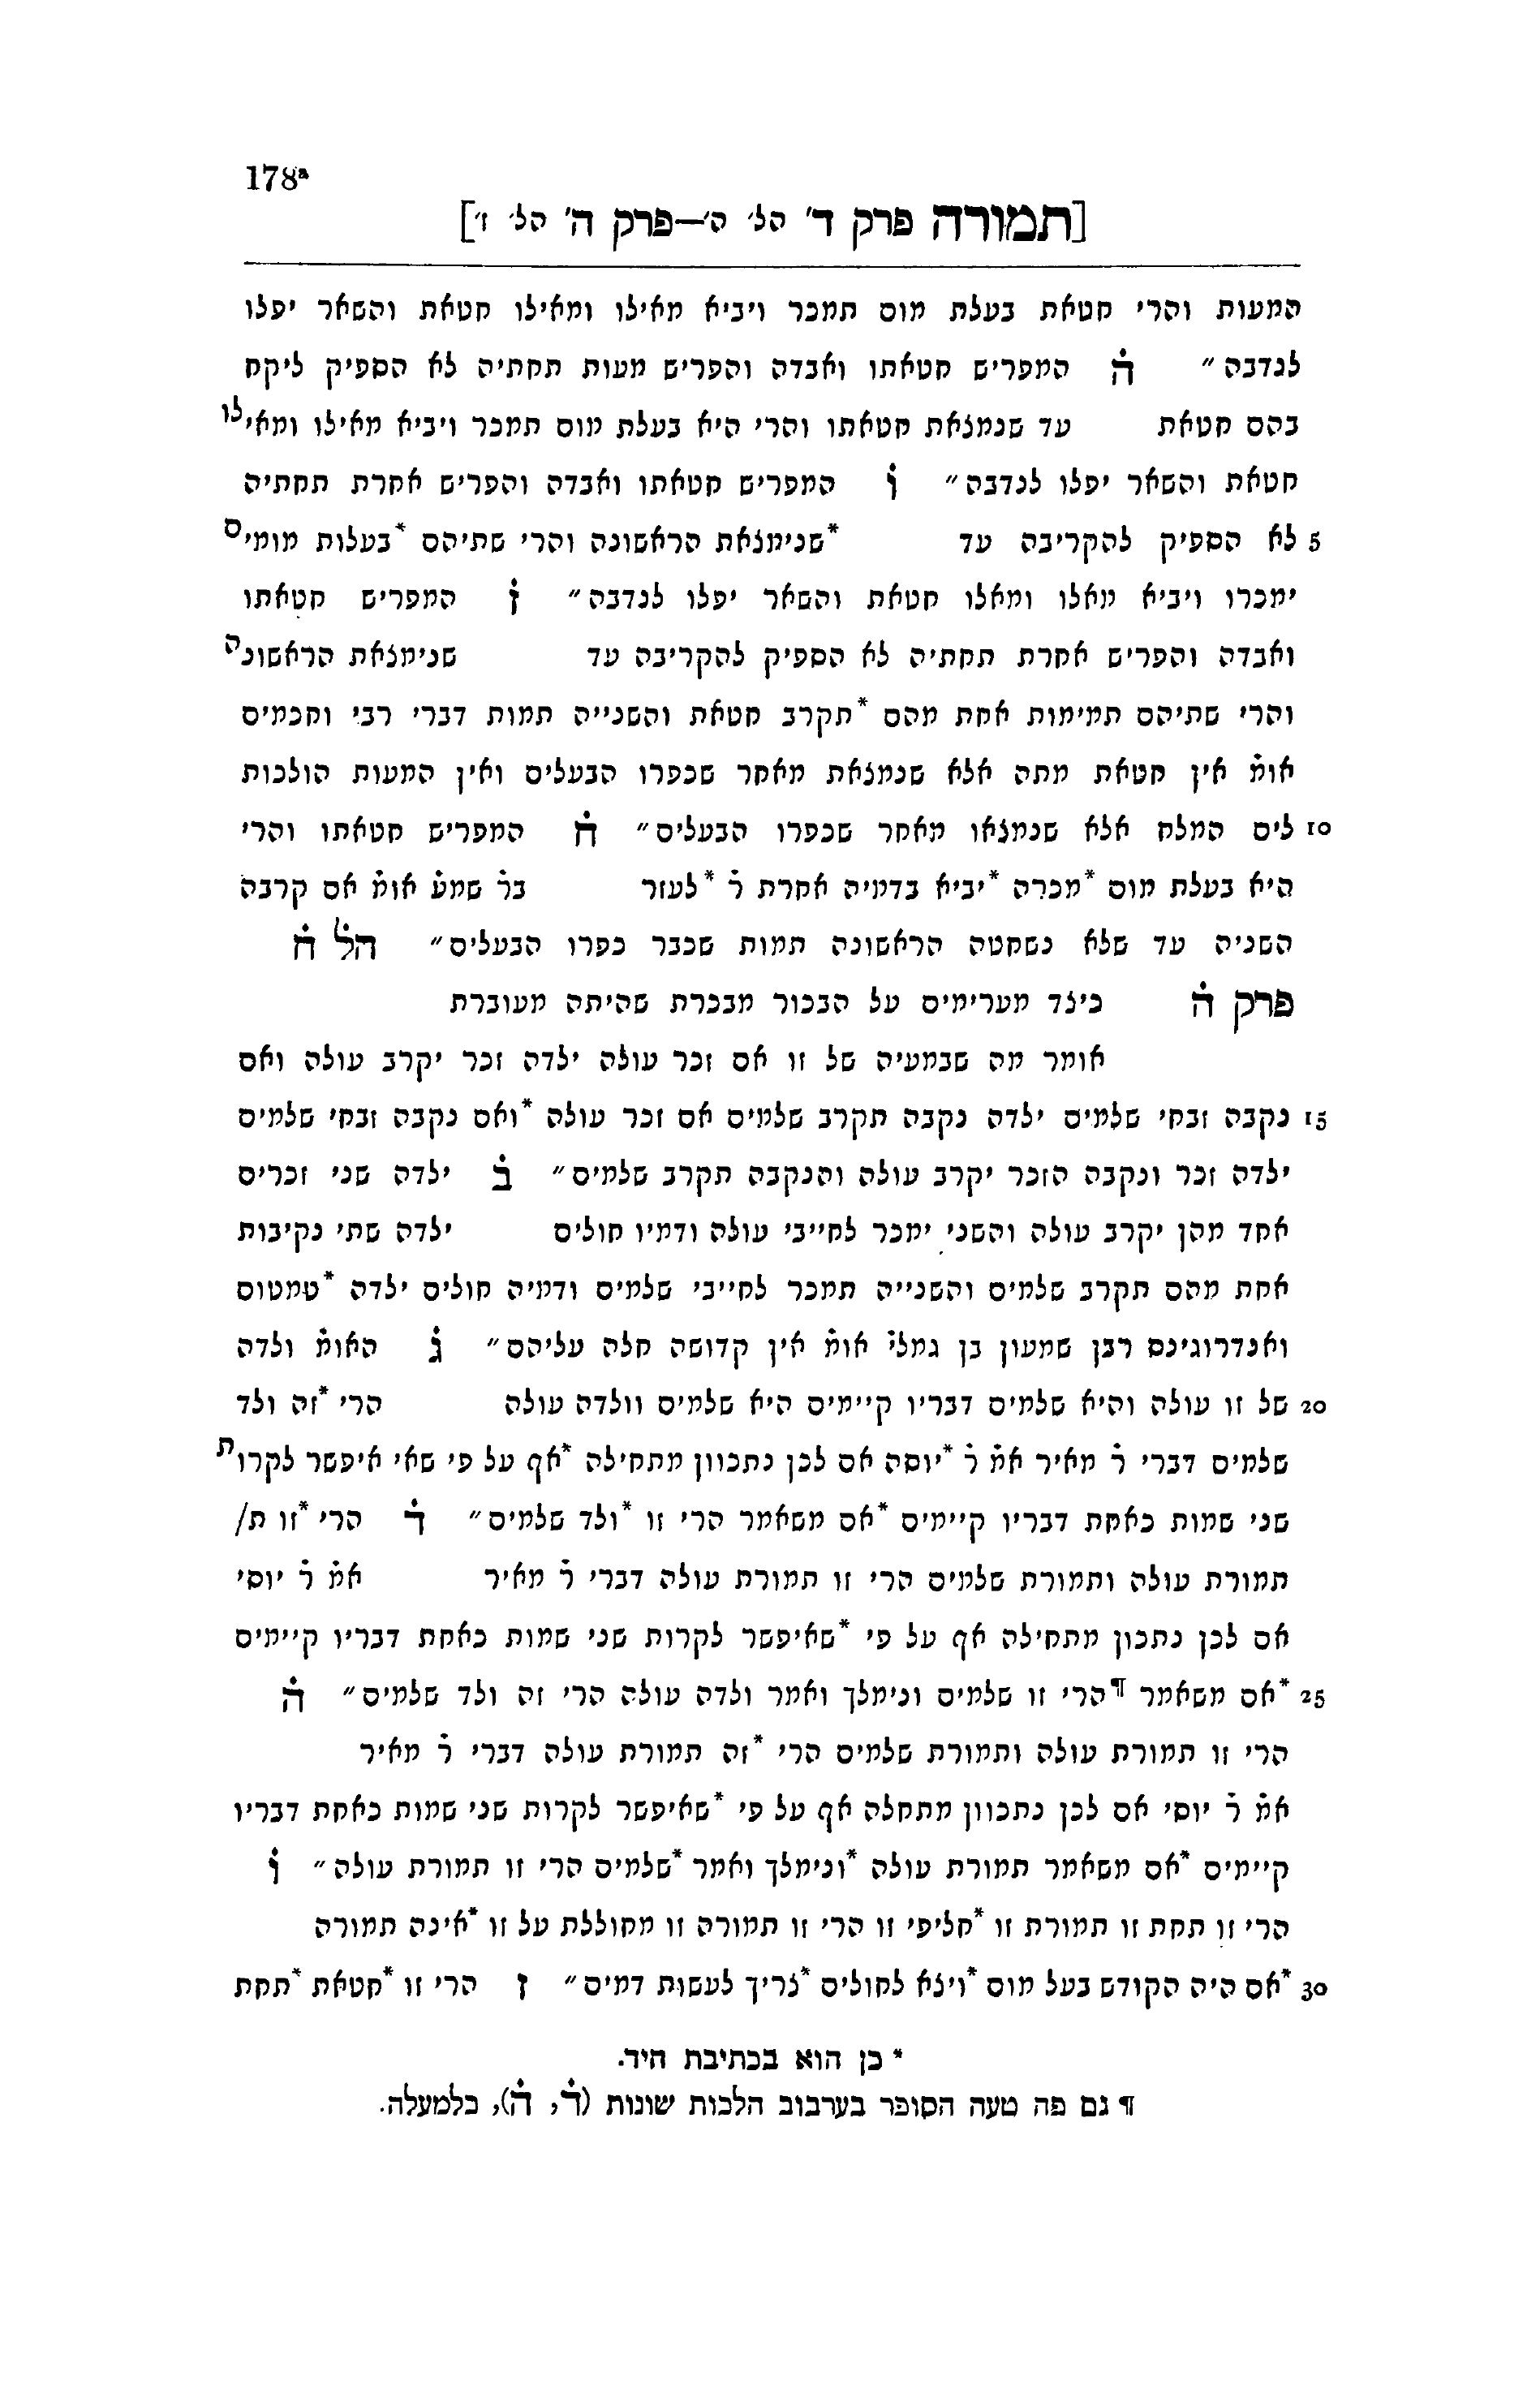 178ᵃ
[תמורה פרק ד' הל' ה'—פרק ה' הל' ז']
המעות והרי חטאת בעלת מום תמכר ויביא מאילו ומאילו חטאת והשאר יפלו
לנדבה״ הׄ המפריש חטאתו ואבדה והפריש מעות תחתיה לא הספיק ליקח
בהם חטאת עד שנמצאת חטאתו והרי היא בעלת מום תמכר ויביא מאילו ומאילו
חטאת והשאר יפלו לנדבה״ וׄ המפריש חטאתו ואבדה והפריש אחרת תחתיה
5 לא הספיק להקריבה עד *שנימצאת הראשונה והרי שתיהם *בעלות מומים
ימכרו ויביא מאלו ומאלו חטאת והשאר יפלו לנדבה״ זׄ המפריש חטאתו
ואבדה והפריש אחרת תחתיה לא הספיק להקריבה עד שנימצאת הראשונה
והרי שתיהם תמימות אחת מהם *תקרב חטאת והשנייה תמות דברי רבי וחכמים
אומׄ אין חטאת מתה אלא שנמצאת מאחר שכפרו הבעלים ואין המעות הולכות
10 לים המלח אלא שנמצאו מאחר שכפרו הבעלים״ חׄ המפריש חטאתו והרי
היא בעלת מום *מכרה *יביא בדמיה אחרת רׄ *לעזר ברׄ שמעׄ אומׄ אם קרבה
השניה עד שלא נשחטה הראשונה תמות שכבר כפרו הבעלים״ הלׄ חׄ
פרק הׄ כיצד מערימים על הבכור מבכרת שהיתה מעוברת
אומר מה שבמעיה של זו אם זכר עולה ילדה זכר יקרב עולה ואם
15 נקבה זבחי שלמים ילדה נקבה תקרב שלמים אם זכר עולה *ואם נקבה זבחי שלמים
ילדה זכר ונקבה הזכר יקרב עולה והנקבה תקרב שלמים״ בׄ ילדה שני זכרים
אחד מהן יקרב עולה והשני ימכר לחייבי עולה ודמיו חולים ילדה שתי נקיבות
אחת מהם תקרב שלמים והשנייה תמכר לחייבי שלמים ודמיה חולים ילדה *טמטום
ואנדרוגינס רבן שמעון בן גמליׄ אומׄ אין קדושה חלה עליהם״ גׄ האומׄ ולדה
20 של זו עולה והיא שלמים דבריו קיימים היא שלמים וולדה עולה הרי *זה ולד
שלמים דברי רׄ מאיר אמׄ רׄ *יוסה אם לכן נתכוון מתחילה *אף על פי שאי איפשר לקרות
שני שמות כאחת דבריו קיימים *אם משאמר הרי זו *ולד שלמים״ דׄ הרי *זו ת/
תמורת עולה ותמורת שלמים הרי זו תמורת עולה דברי רׄ מאיר אמׄ רׄ יוסי
אם לכן נתכון מתחילה אף על פי *שאיפשר לקרות שני שמות כאחת דבריו קיימים
25 *אם משאמר ¶הרי זו שלמים ונימלך ואמר ולדה עולה הרי זה ולד שלמים״ הׄ
הרי זו תמורת עולה ותמורת שלמים הרי *זה תמורת עולה דברי רׄ מאיר
אמׄ רׄ יוסי אם לכן נתכוון מתחלה אף על פי *שאיפשר לקרות שני שמות כאחת דבריו
קיימים *אם משאמר תמורת עולה *ונימלך ואמר *שלמים הרי זו תמורת עולה״ וׄ
הרי זו תחת זו תמורת זו *חליפי זו הרי זו תמורה זו מחוללת על זו *אינה תמורה
30 *אם היה הקודש בעל מום *ויצא לחולים *צריך לעשות דמים״ ז הרי זו *חטאת *תחת
* כן הוא בכתיבת היד.
¶ גם פה טעה הסופר בערבוב הלכות שונות (דׄ, הׄ), כלמעלה.